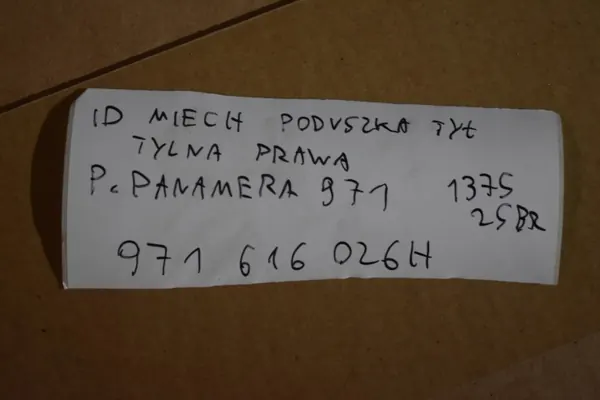 ID MIECH PODUSZKA TYŁ
TYLNA PRAWA
P. PANAMERA 971 1375
25BR
971 616 026H